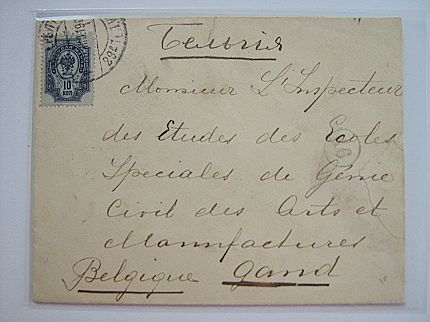 Бельгiя
10
КОП
Monsieur L'Inspecteur
des Etudes des Ecoles
Speciales de Génie
Civil des Arts et
Mannfactures
Belgique Gand